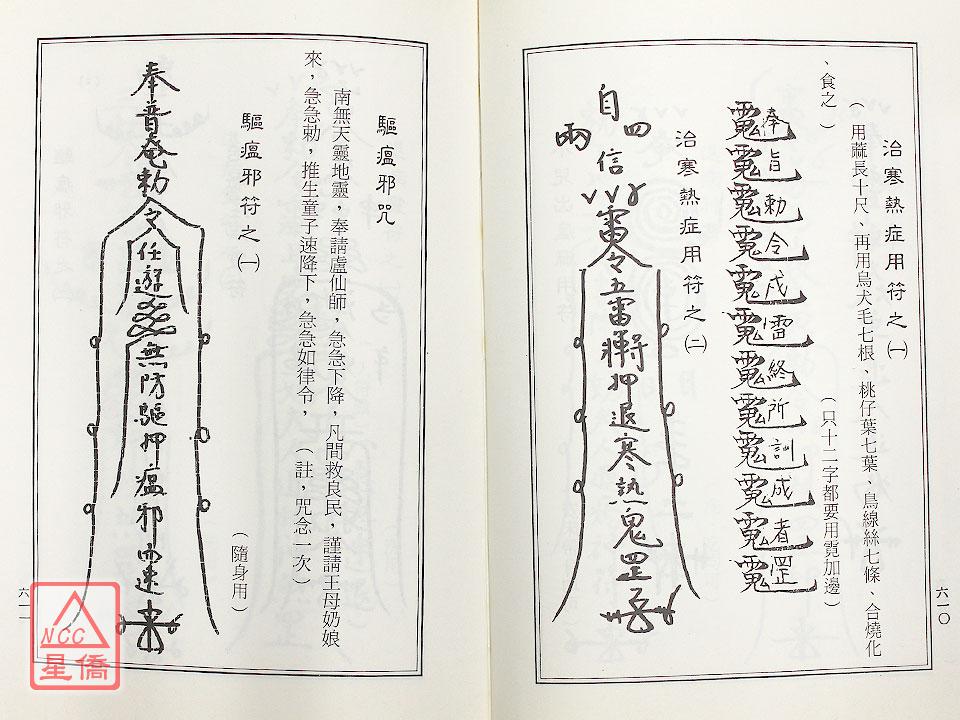 治寒熱症用符之㈠
（用蔴長十尺、再用烏犬毛七根、桃仔葉七葉、烏線絲七條、合燒化
、食之）
（只十二字都要用霓加邊）
奉旨勅令戌雷終所訓成者罡
治寒熱症用符之㈡
自
四
信
雨
令五雷
押退寒熱鬼罡
六一〇
驅瘟邪咒
南無天靈地靈，奉請盧仙師，急急下降，凡間救良民，謹請王母奶娘
來，急急勅，推生童子速降下，急急如律令，（註，咒念一次）
驅瘟邪符之㈠
（隨身用）
奉普庵勅令
任遊
無防驅押瘟邪
速
六一一
NCC
星僑